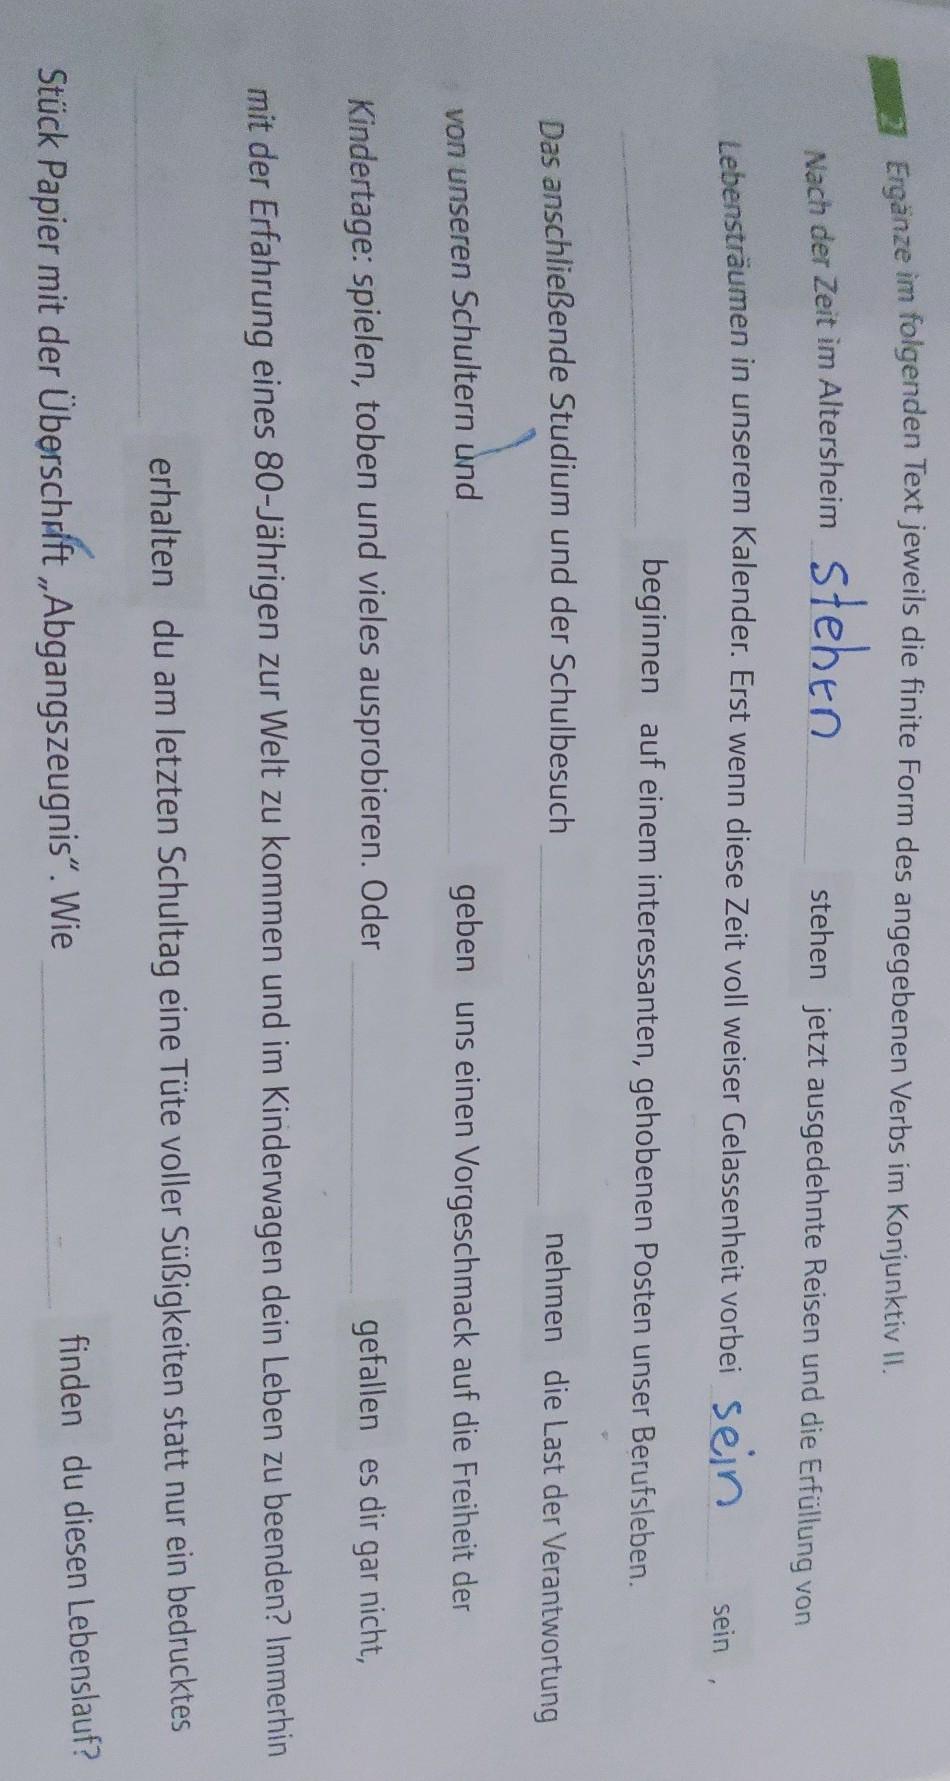 2 Ergänze im folgenden Text jeweils die finite Form des angegebenen Verbs im Konjunktiv II.
Nach der Zeit im Altersheim stehen stehen jetzt ausgedehnte Reisen und die Erfüllung von
Lebensträumen in unserem Kalender. Erst wenn diese Zeit voll weiser Gelassenheit vorbei sein sein ,
beginnen auf einem interessanten, gehobenen Posten unser Berufsleben.
Das anschließende Studium und der Schulbesuch nehmen die Last der Verantwortung
von unseren Schultern und geben uns einen Vorgeschmack auf die Freiheit der
Kindertage: spielen, toben und vieles ausprobieren. Oder gefallen es dir gar nicht,
mit der Erfahrung eines 80-Jährigen zur Welt zu kommen und im Kinderwagen dein Leben zu beenden? Immerhin
erhalten du am letzten Schultag eine Tüte voller Süßigkeiten statt nur ein bedrucktes
Stück Papier mit der Überschrift „Abgangszeugnis“. Wie finden du diesen Lebenslauf?